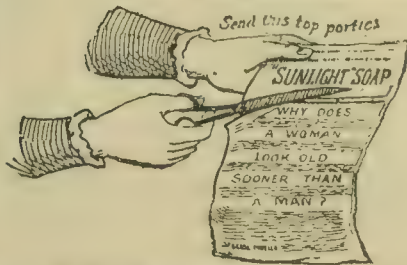 Send this top porties
"SUNLIGHT SOAP
WHY DOES
A WOMAN
LOOK OLD
SOONER THAN
A MAN?